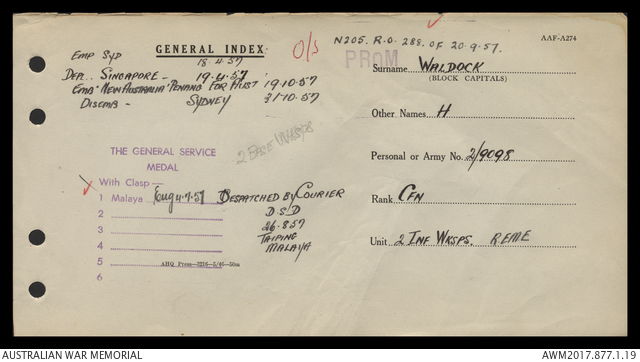 N205. R.O. 288. OF 20.9.57.
AAF-A274
GENERAL INDEX
O/S
PROM
Emp Syd 18.4.57
Dep. Singapore - 19.4.57
Emb "New Australia" Penang For Aust 19.10.57
Disemb - Sydney 31.10.57
Surname WALDOCK
(BLOCK CAPITALS)
Other Names H
Personal or Army No. 2/9098
Rank CFN
Unit 2 INF WKSPS. REME
THE GENERAL SERVICE
MEDAL
With Clasp—
1 Malaya 4.7.57 DESPATCHED BY COURIER
2 D.S.D
3 26.8.57
4 TAIPING
MALAYA
5 AHQ Press—3216—5/46—50m
6
AUSTRALIAN WAR MEMORIAL
AWM2017.877.1.19